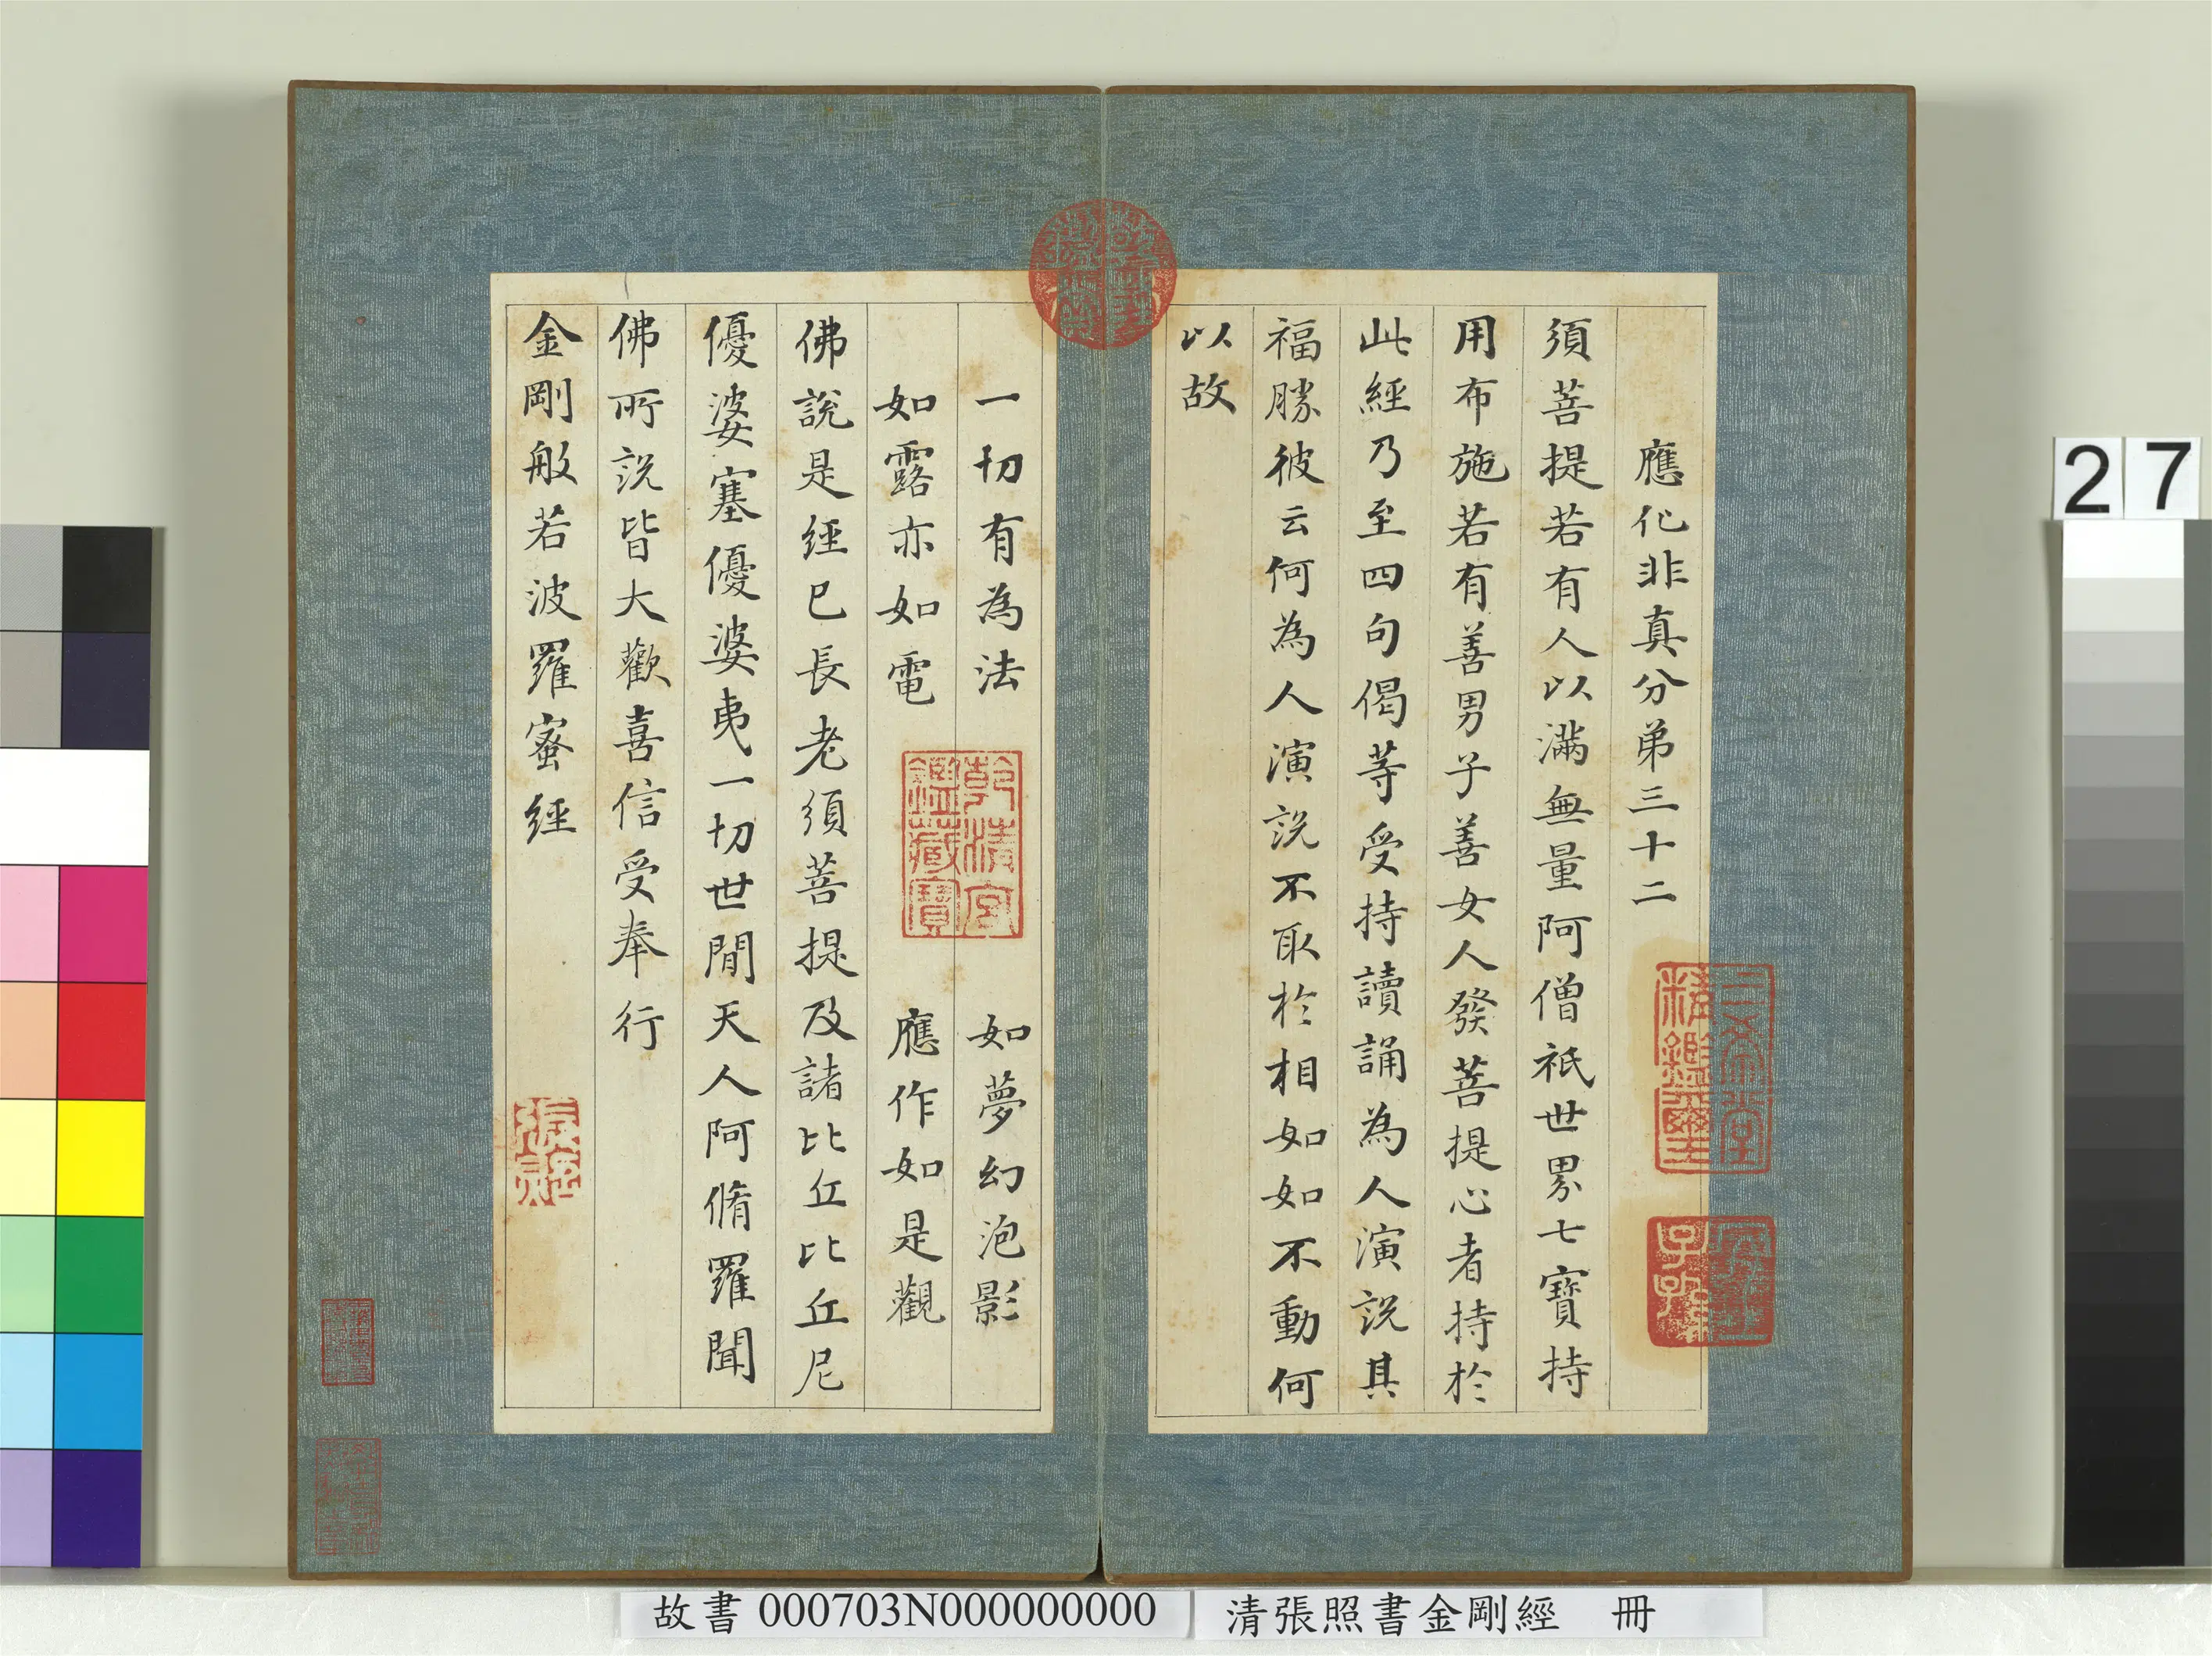 應化非真分弟三十二
須菩提若有人以滿無量阿僧祇世界七寶持
用布施若有善男子善女人發菩提心者持於
此經乃至四句偈等受持讀誦為人演說其
福勝彼云何為人演說不取於相如如不動何
以故
一切有為法 如夢幻泡影
如露亦如電 應作如是觀
佛說是經已長老須菩提及諸比丘比丘尼
優婆塞優婆夷一切世間天人阿脩羅聞
佛所說皆大歡喜信受奉行
金剛般若波羅蜜經
乾隆御覽之寶
三希堂精鑑璽
宜子孫
乾清宮鑑藏寶
張照
27
故書 000703N000000000
清張照書金剛經 冊